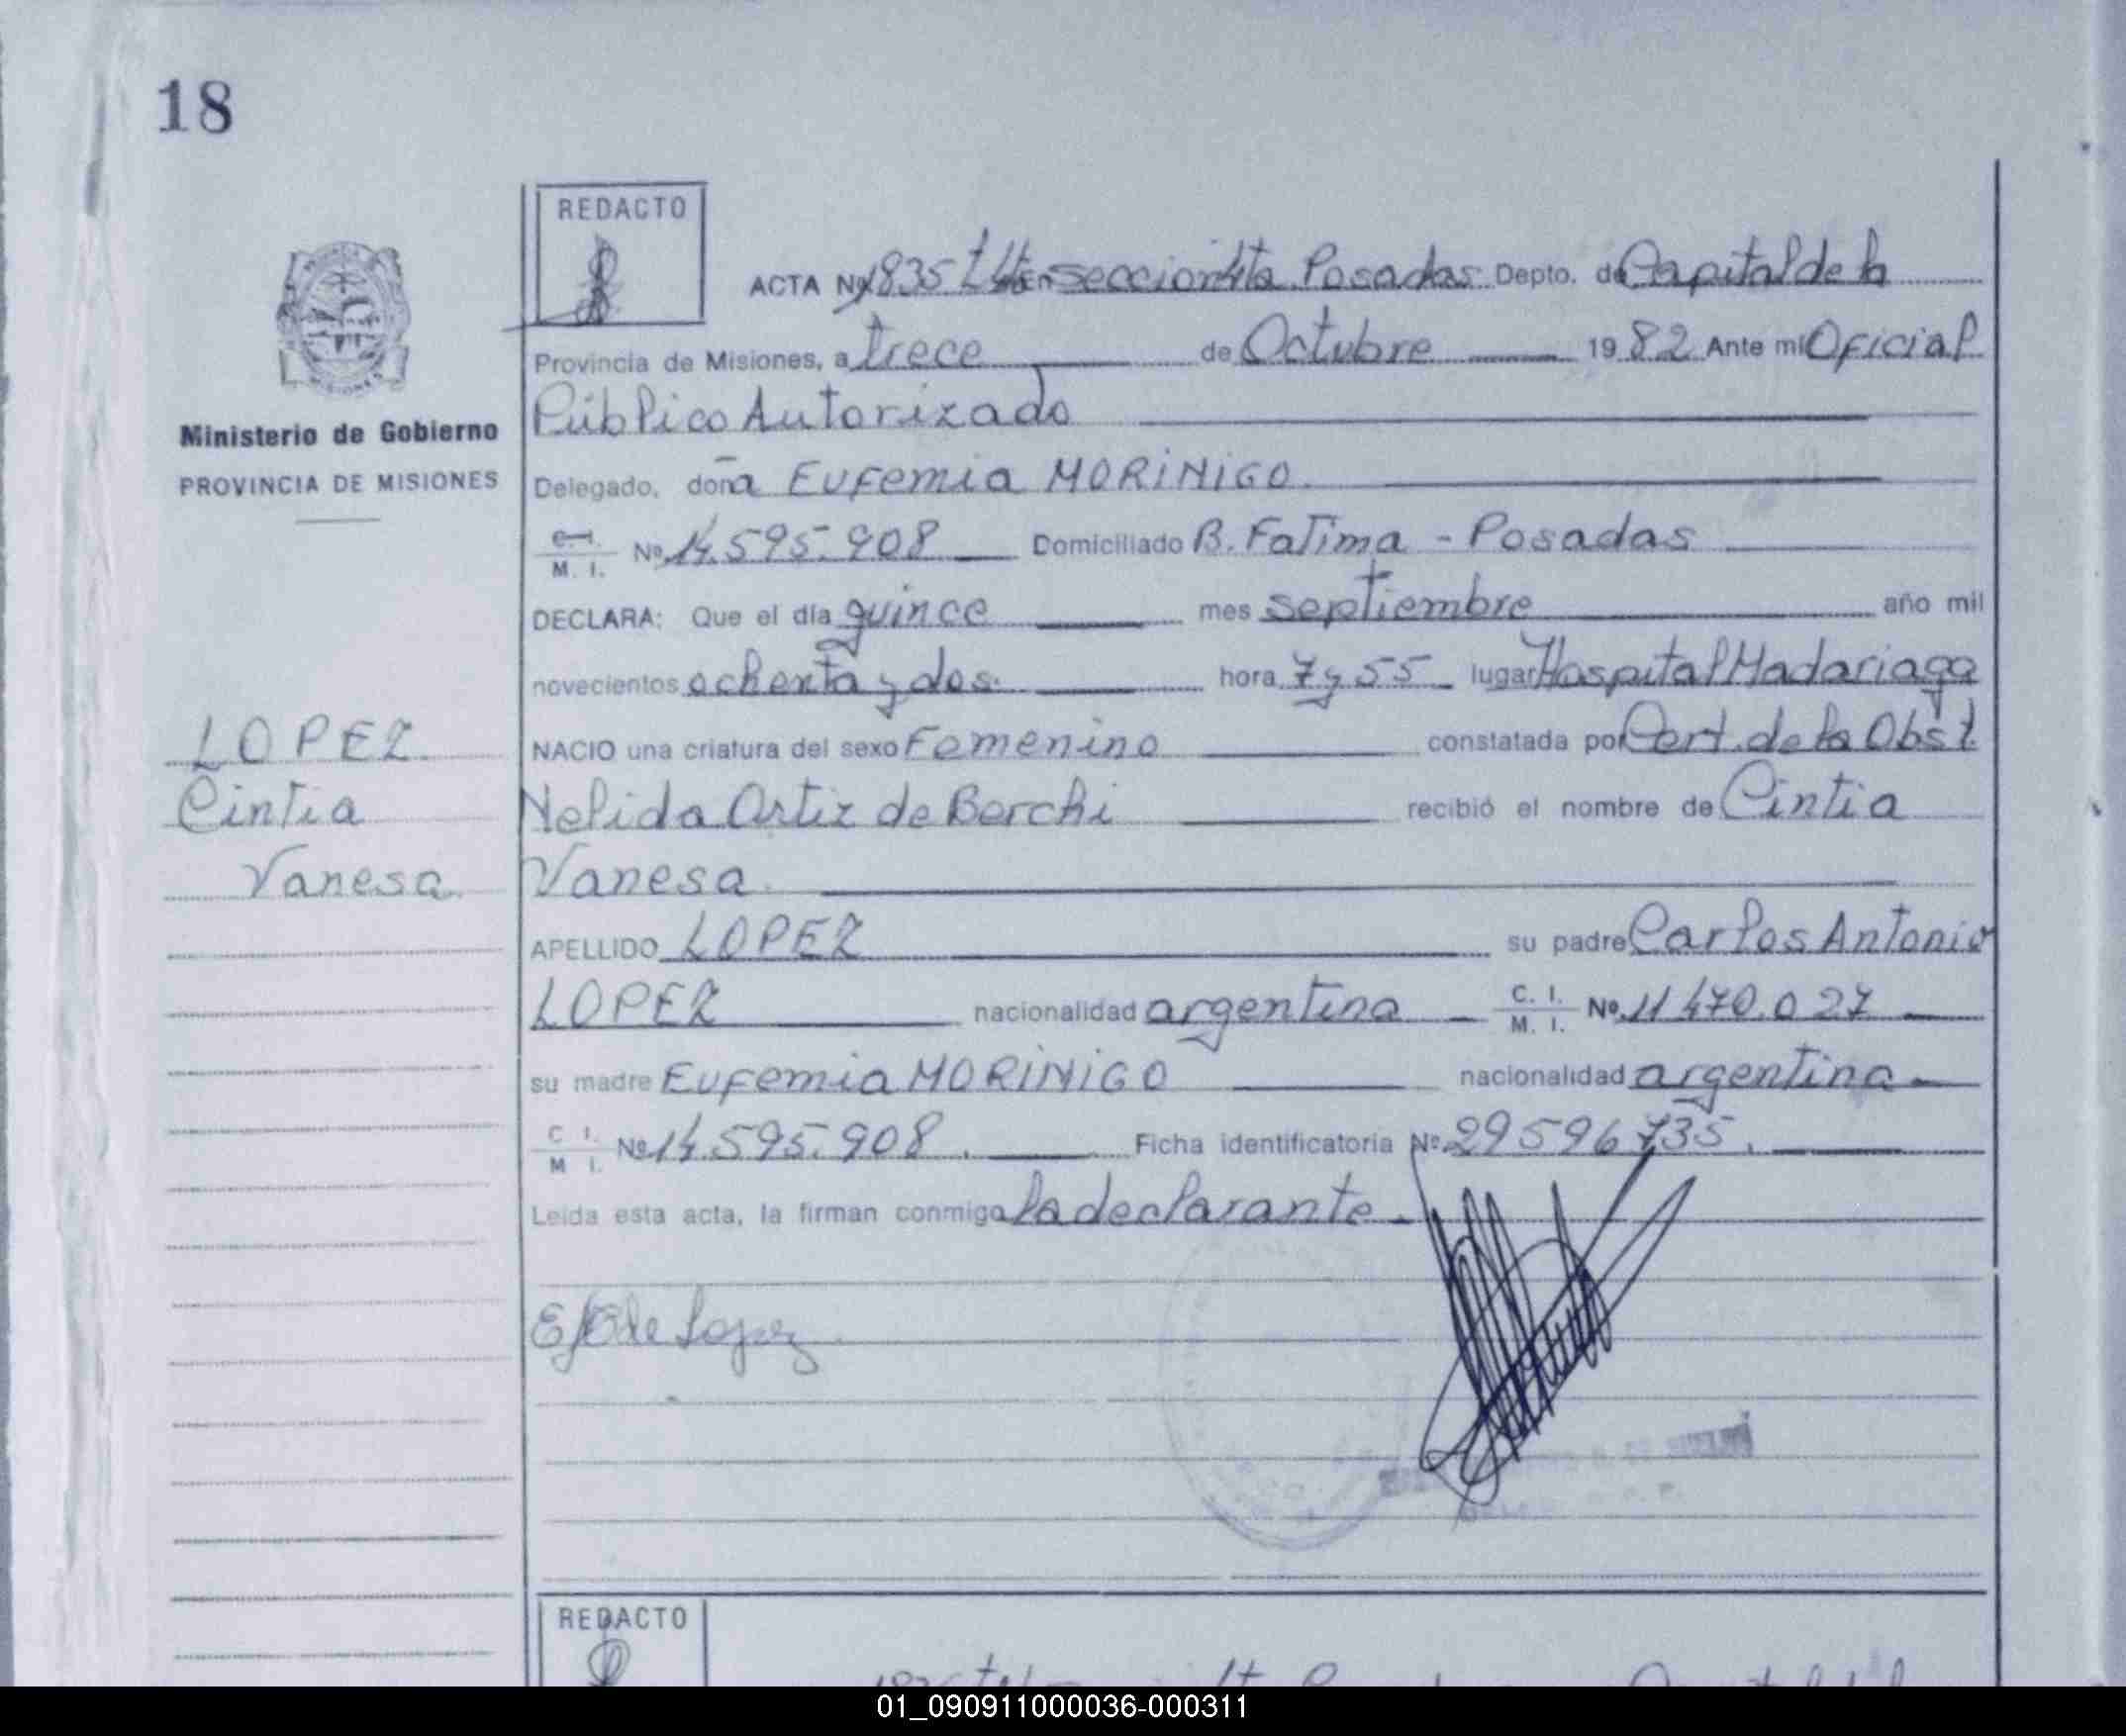 18
REDACTO
ACTA Nº 1835 t 4to en seccion 4ta. Posadas Depto. de Capital de la
Provincia de Misiones, a trece de Octubre 1982 Ante mi Oficial
Ministerio de Gobierno
PROVINCIA DE MISIONES
Público Autorizado
Delegado, doña Eufemia MORINIGO.
C. I.
M. I. Nº 14.595.908 Domiciliado B. Fatima - Posadas
DECLARA: Que el día quince mes septiembre año mil
novecientos ochenta y dos. hora 7 y 55 lugar Hospital Madariaga
NACIO una criatura del sexo Femenino constatada por Cert. de la Obst.
Nelida Ortiz de Berchi recibió el nombre de Cintia
Vanesa.
LOPEZ
Cintia
Vanesa.
APELLIDO LOPEZ su padre Carlos Antonio
LOPEZ nacionalidad argentina C. I.
M. I. Nº 11 470.027
su madre Eufemia MORINIGO nacionalidad argentina
C I.
M I. Nº 14.595.908. Ficha identificatoria Nº 29596735.
Leida esta acta, la firman conmigo la declarante.
de Lopez
REDACTO
01_090911000036-000311